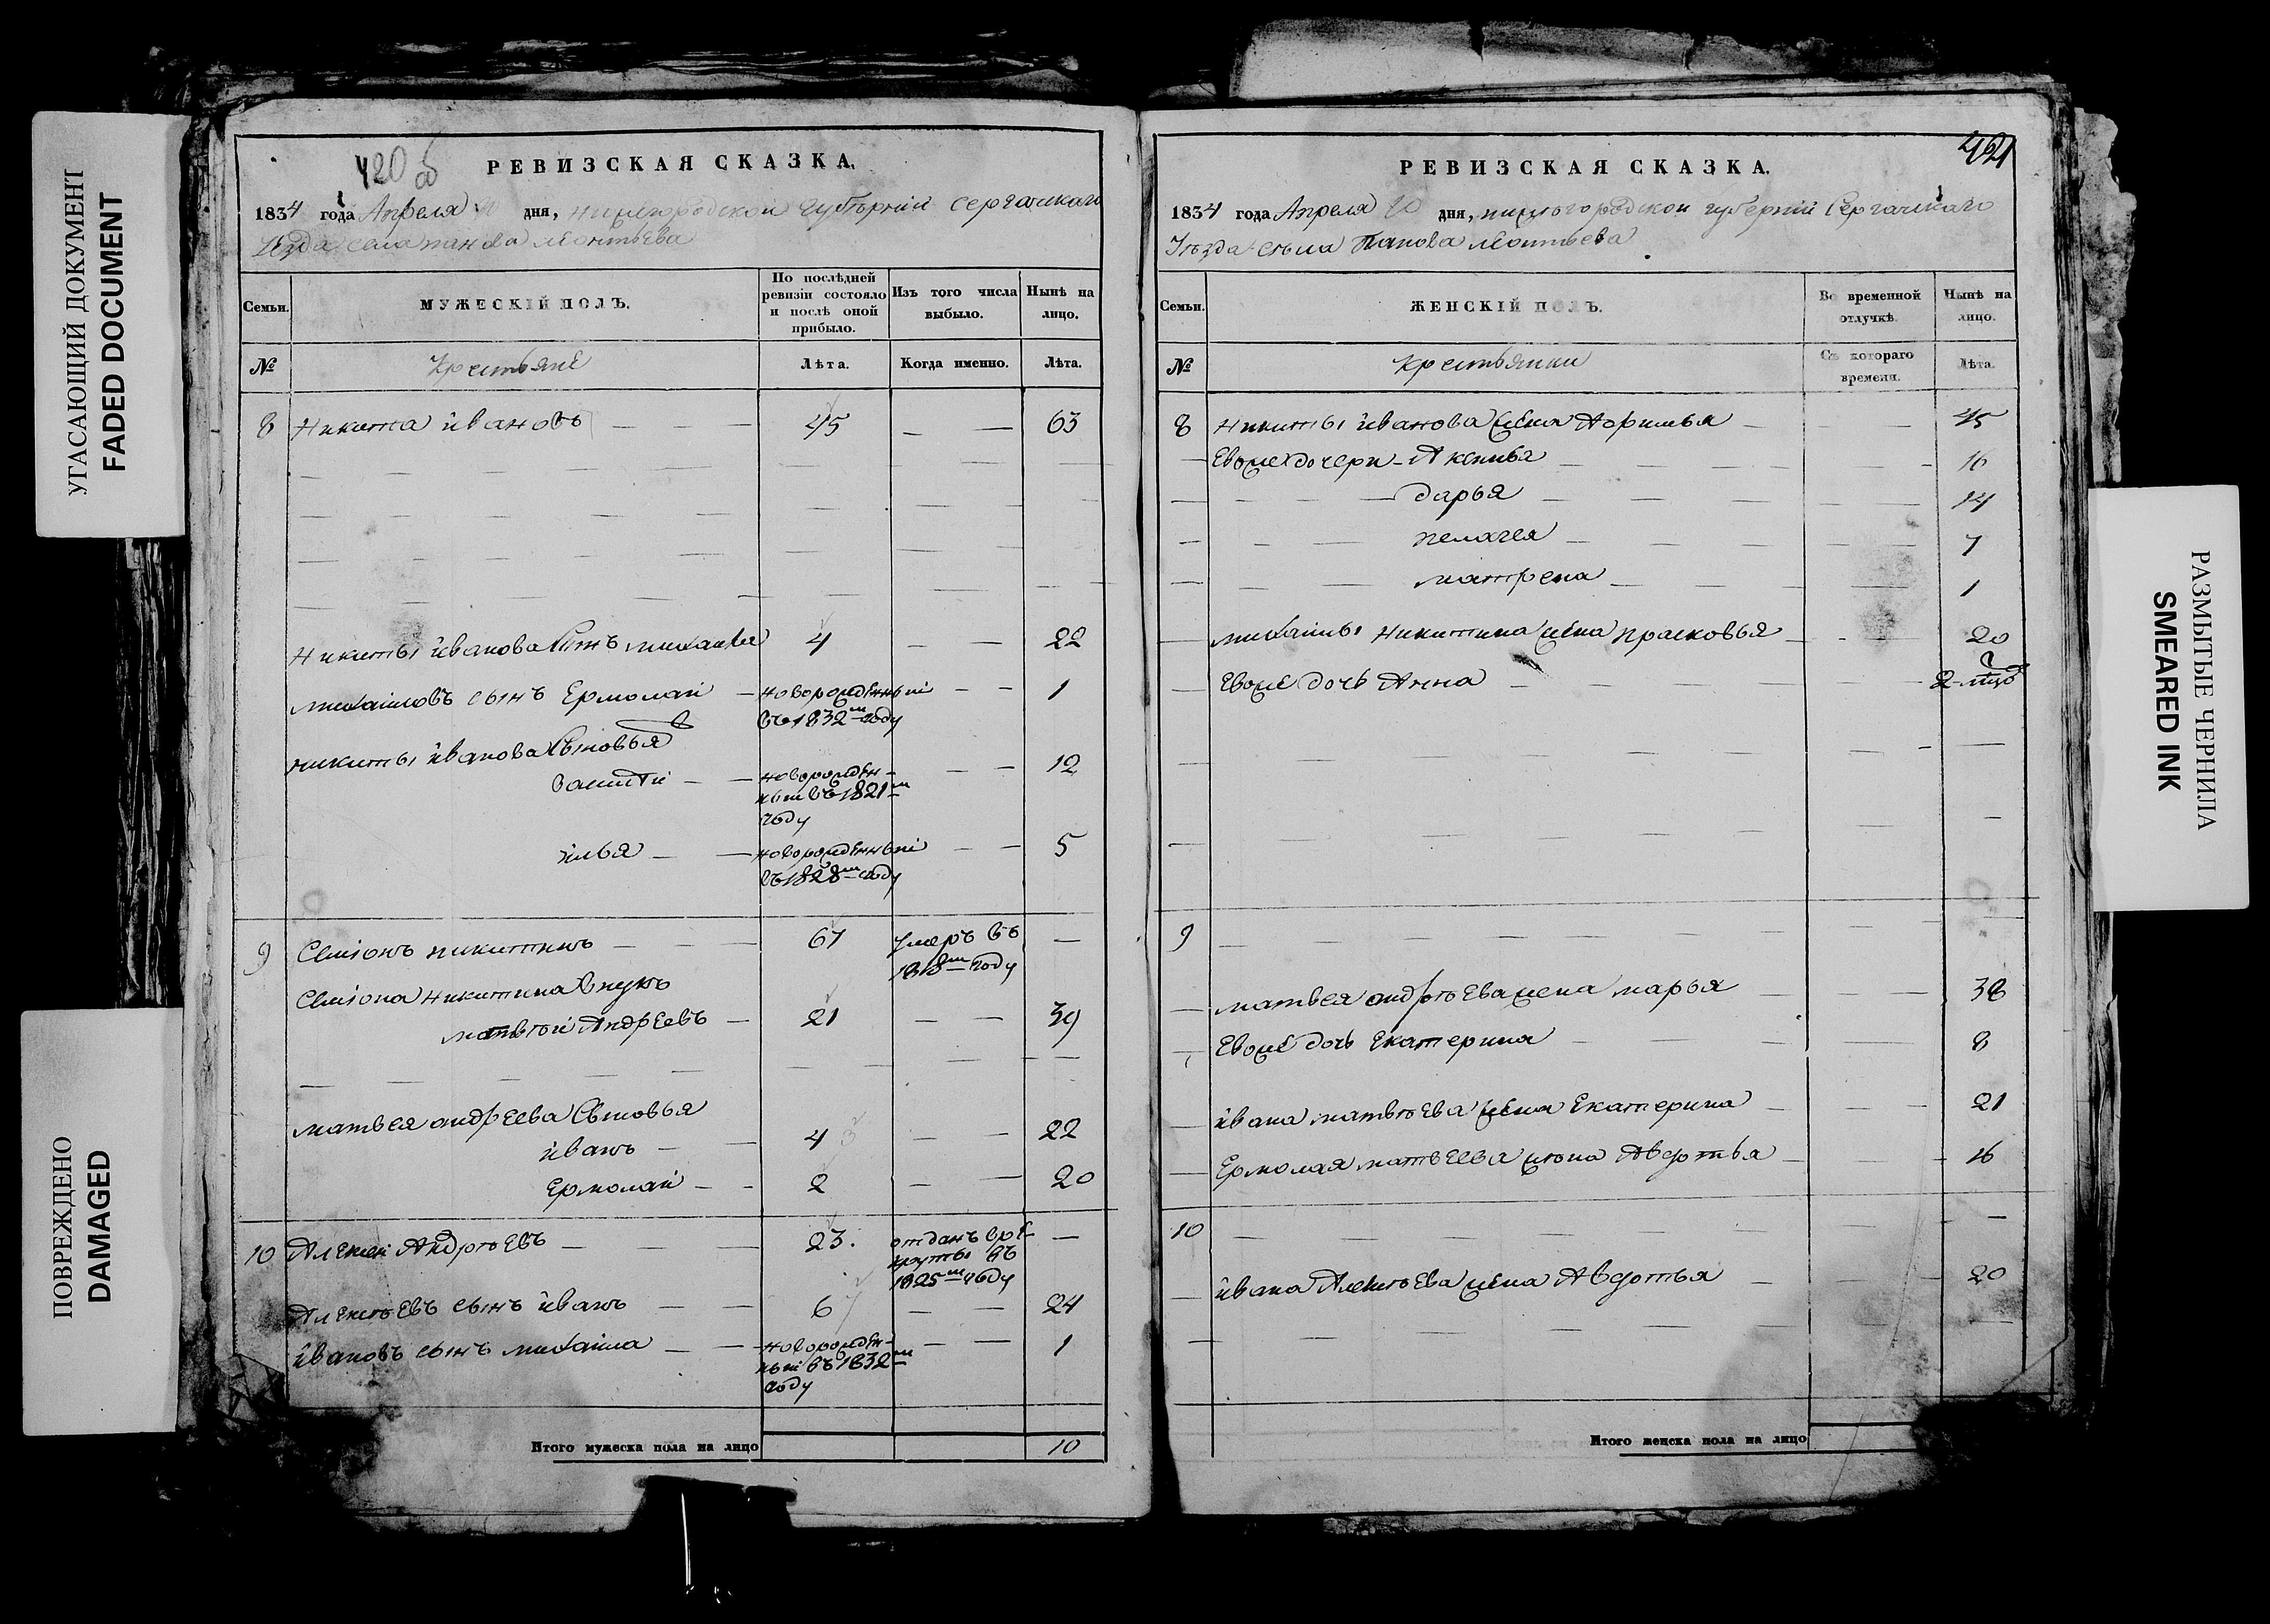 УГАСАЮЩИЙ ДОКУМЕНТ
FADED DOCUMENT
ПОВРЕЖДЕНО
DAMAGED
420 об
РЕВИЗСКАЯ СКАЗКА.
1834 года Апреля дня, нижегородской губѣрнiй сергачскаго
Уезда села панова леонтьева
Семьи. МУЖЕСКIЙ ПОЛЪ. По послѣдней ревизiи состояло и послѣ оной прибыло. Изъ того числа выбыло. Нынѣ на лицо.
№ Крестьяне Лѣта. Когда именно. Лѣта.
8 Никита ивановъ 45 — — 63
Никиты иванова сынъ михаила 4 — — 22
михаиловъ сынъ Ермолай — новорожденный — — 1
въ 1832м году
никиты иванова Сыновья
василiй — — новорожден- — — 12
ный въ 1821м
году
илья — — новорожденный — — 5
въ 1828м году
9 Семiонъ никитинъ — — — 67 умеръ въ —
1818м году
Семiона никитина внукъ
матвѣй Андреевъ — 21 — — 39
матвея андреева Сыновья
иванъ — — 4 — — 22
Ермолай — — 2 — — 20
10 Алексеи Андрѣевъ — — — 23. отданъ врѣ- —
круты въ
1825м году
Алексѣевъ сынъ иванъ — — 6 — — 24
ивановъ сынъ михаила — — новорожден- — — 1
ный въ 1832м
году
Итого мужеска пола на лицо 10
РЕВИЗСКАЯ СКАЗКА.
1834 года Апреля 20 дня, нижегородской губернiй Сергачскаго
Уѣзда сѣла Панова леонтьева
Семьи. ЖЕНСКIЙ ПОЛЪ. Во временной отлучкѣ. Нынѣ на лицо.
№ крестьянки Съ котораго времени. Лѣта.
8 никиты иванова жена 45
Евоже дочери — Аксинья 16
дарья 14
пелагея 7
матрена 1
михаилы никитина жена прасковья 20
Евоже дочь Анна
9
матвея андрѣева жена марья 38
Евоже дочь Екатерина 8
ивана матвѣева жена Екатерина 21
Ермолая матвеева жена Авдотья 16
10
ивана Алексѣева жена Авдотья 20
Итого женска пола на лицо
РАЗМЫТЫЕ ЧЕРНИЛА
SMEARED INK